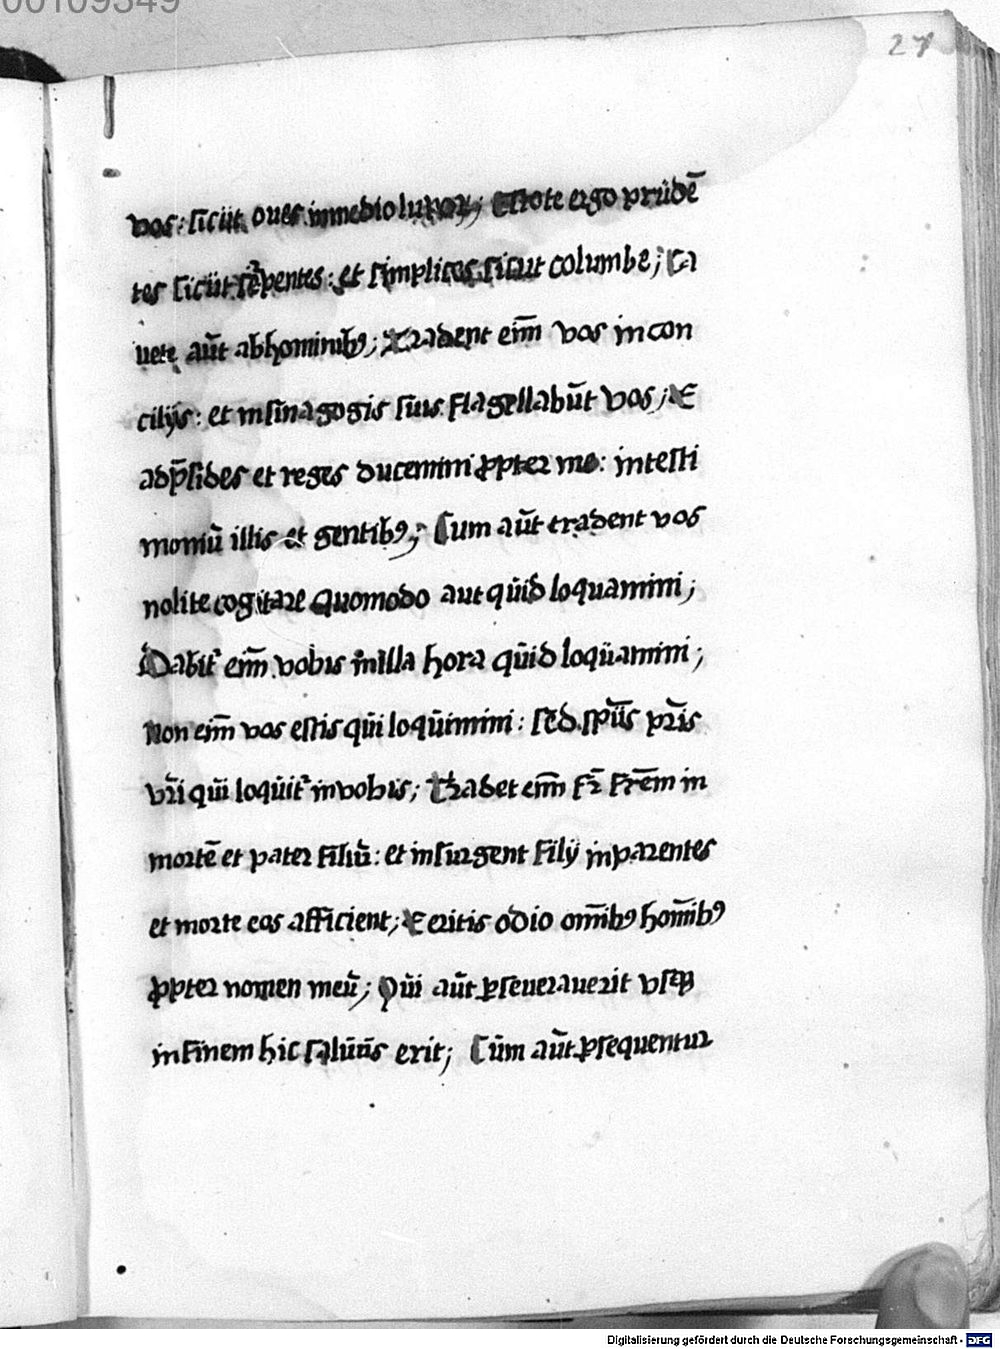 00109349
27
vos: sicut oues in medio lupoꝝ; Estote ergo prudē
tes sicut serpentes: et simplices sicut columbe; Ca
uete aūt ab hominibꝫ; Tradent eīm vos in con
cilijs: et in sinagogis suis flagellabūt vos; Et
ad p̄sides et reges ducemini ꝓpter me: in testi
moniū illis et gentibꝫ; Cum aūt tradent vos
nolite cogitare quomodo aut quid loquamini;
Dabit͛ eīm vobis in illa hora quid loquamini;
Non eīm vos estis qui loquimini: sed sp̄us pr̄is
vr̄i qui loquit͛ in vobis; Tradet eīm fr̄ fr̄em in
mortē et pater filiū: et insurgent filij in parentes
et morte eos afficient; Et eritis odio om̄ibꝫ hom̄ibꝫ
ꝓpter nomen meū; Qui aūt ꝑseuerauerit vsqꝫ
in finem hic saluus erit; Cum aūt ꝑsequentur
Digitalisierung gefördert durch die Deutsche Forschungsgemeinschaft - DFG